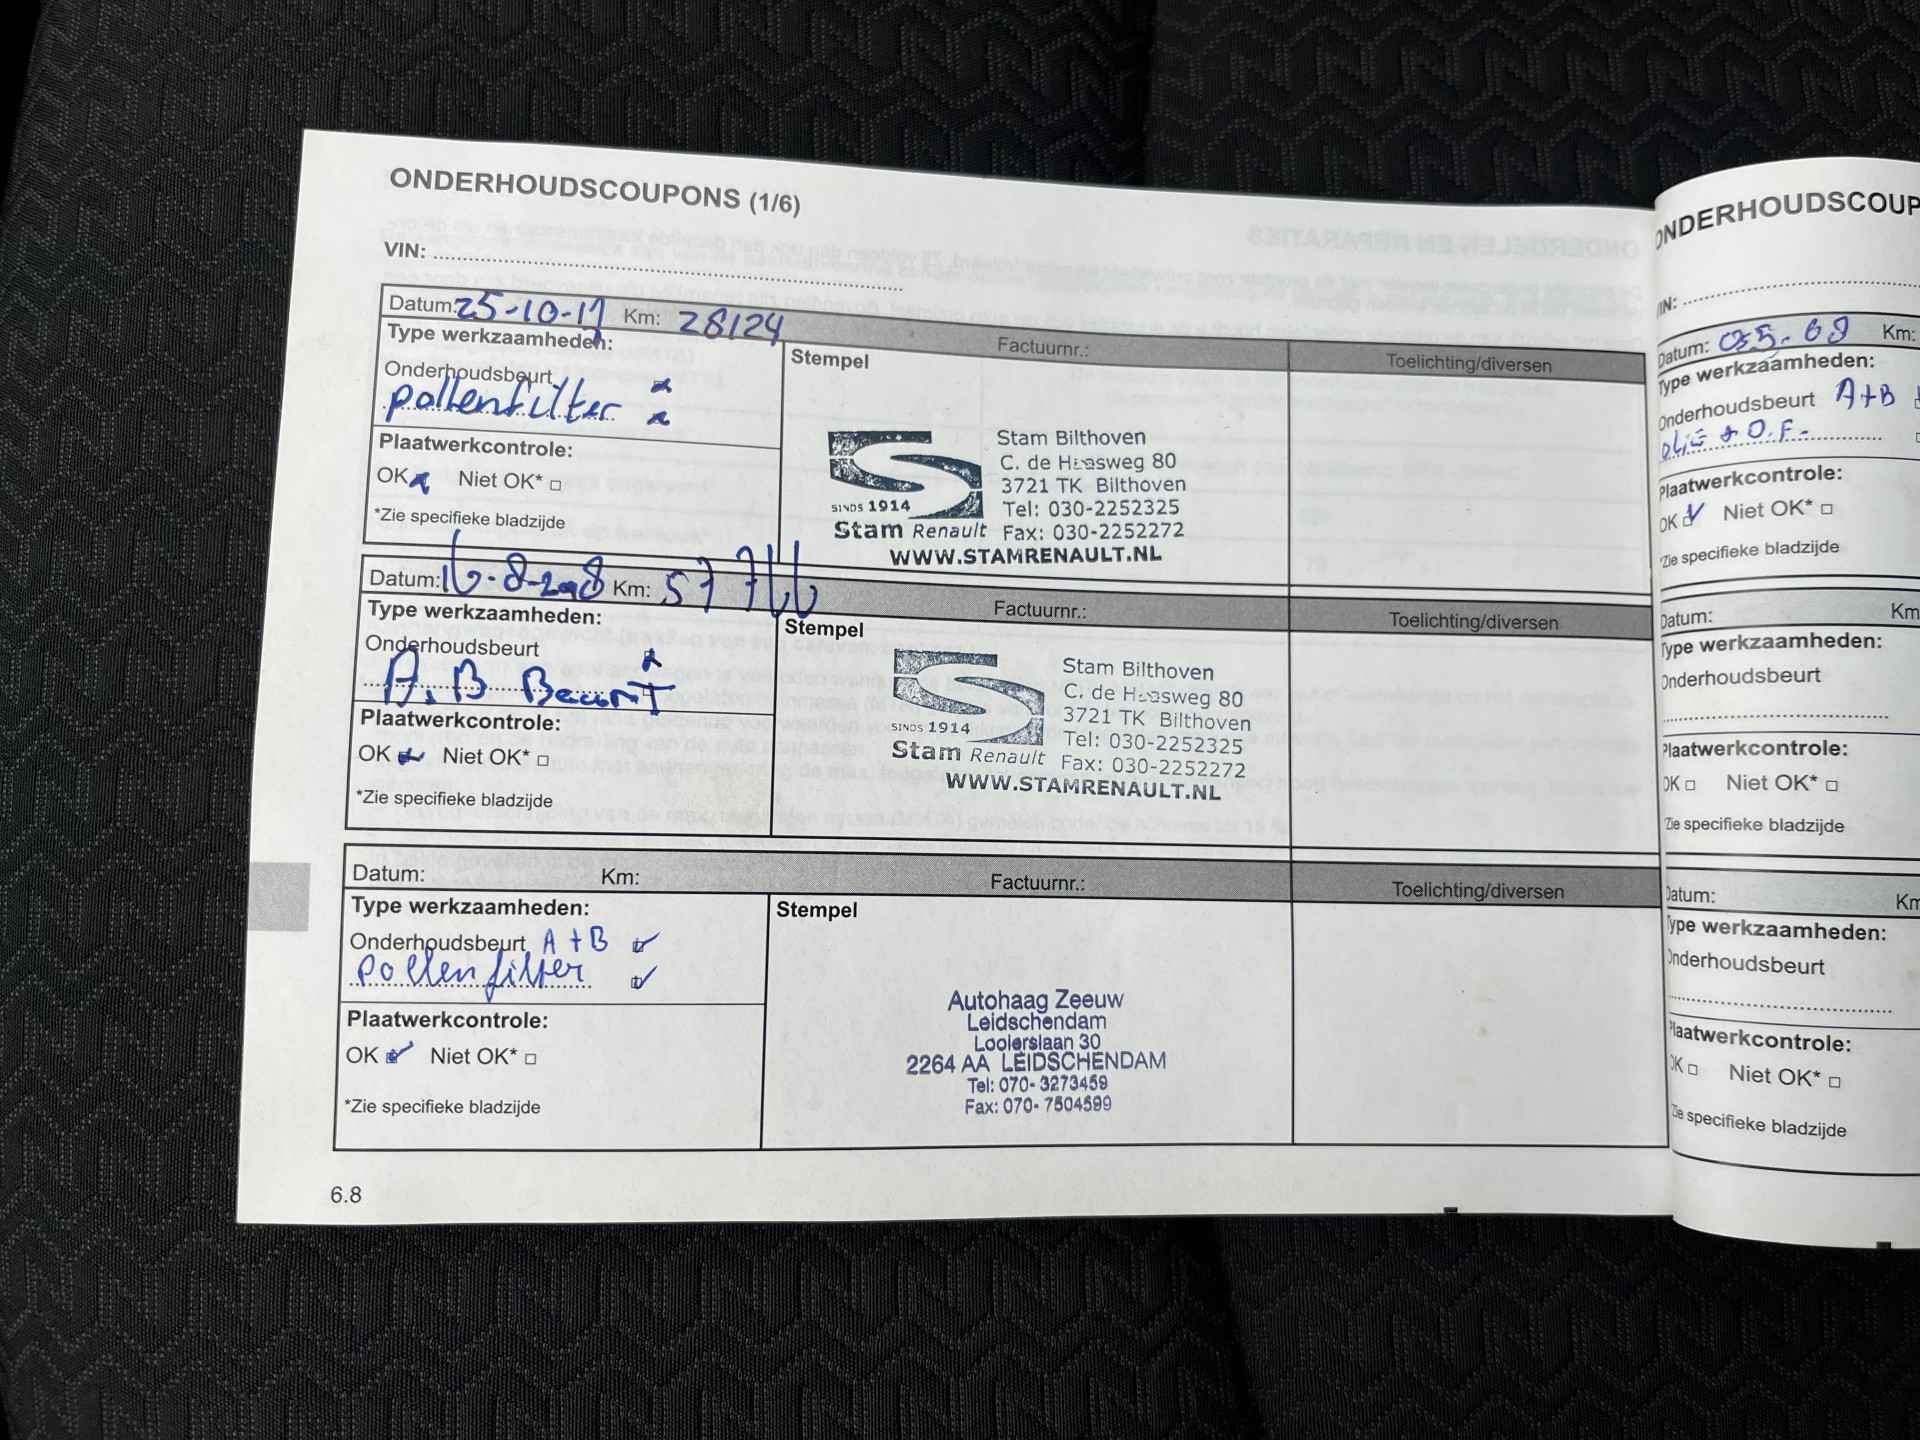 ONDERHOUDSCOUPONS (1/6)
VIN:
Datum: 25-10-17 Km: 28124 Factuurnr.: Toelichting/diversen
Type werkzaamheden:
Onderhoudsbeurt
pollenfilter
Plaatwerkcontrole:
OK Niet OK*
*Zie specifieke bladzijde
Stempel
Stam Bilthoven
C. de Haasweg 80
3721 TK Bilthoven
Tel: 030-2252325
Fax: 030-2252272
SINDS 1914
Stam Renault
WWW.STAMRENAULT.NL
Datum: 16-8-2018 Km: 57766 Factuurnr.: Toelichting/diversen
Type werkzaamheden:
Onderhoudsbeurt
A. B Beurt
Plaatwerkcontrole:
OK Niet OK*
*Zie specifieke bladzijde
Stempel
Stam Bilthoven
C. de Haasweg 80
3721 TK Bilthoven
Tel: 030-2252325
Fax: 030-2252272
SINDS 1914
Stam Renault
WWW.STAMRENAULT.NL
Datum: Km: Factuurnr.: Toelichting/diversen
Type werkzaamheden:
Onderhoudsbeurt A+B
pollenfilter
Plaatwerkcontrole:
OK Niet OK*
*Zie specifieke bladzijde
Stempel
Autohaag Zeeuw
Leidschendam
Loolerslaan 30
2264 AA LEIDSCHENDAM
Tel: 070-3273459
Fax: 070-7504599
6.8
ONDERHOUDSCOUP
VIN:
Datum: Km:
Type werkzaamheden:
Onderhoudsbeurt A+B
olie + O.F.
Plaatwerkcontrole:
OK Niet OK*
*Zie specifieke bladzijde
Datum: Km
Type werkzaamheden:
Onderhoudsbeurt
Plaatwerkcontrole:
OK Niet OK*
Zie specifieke bladzijde
Datum: Km
Type werkzaamheden:
Onderhoudsbeurt
Plaatwerkcontrole:
OK Niet OK*
Zie specifieke bladzijde